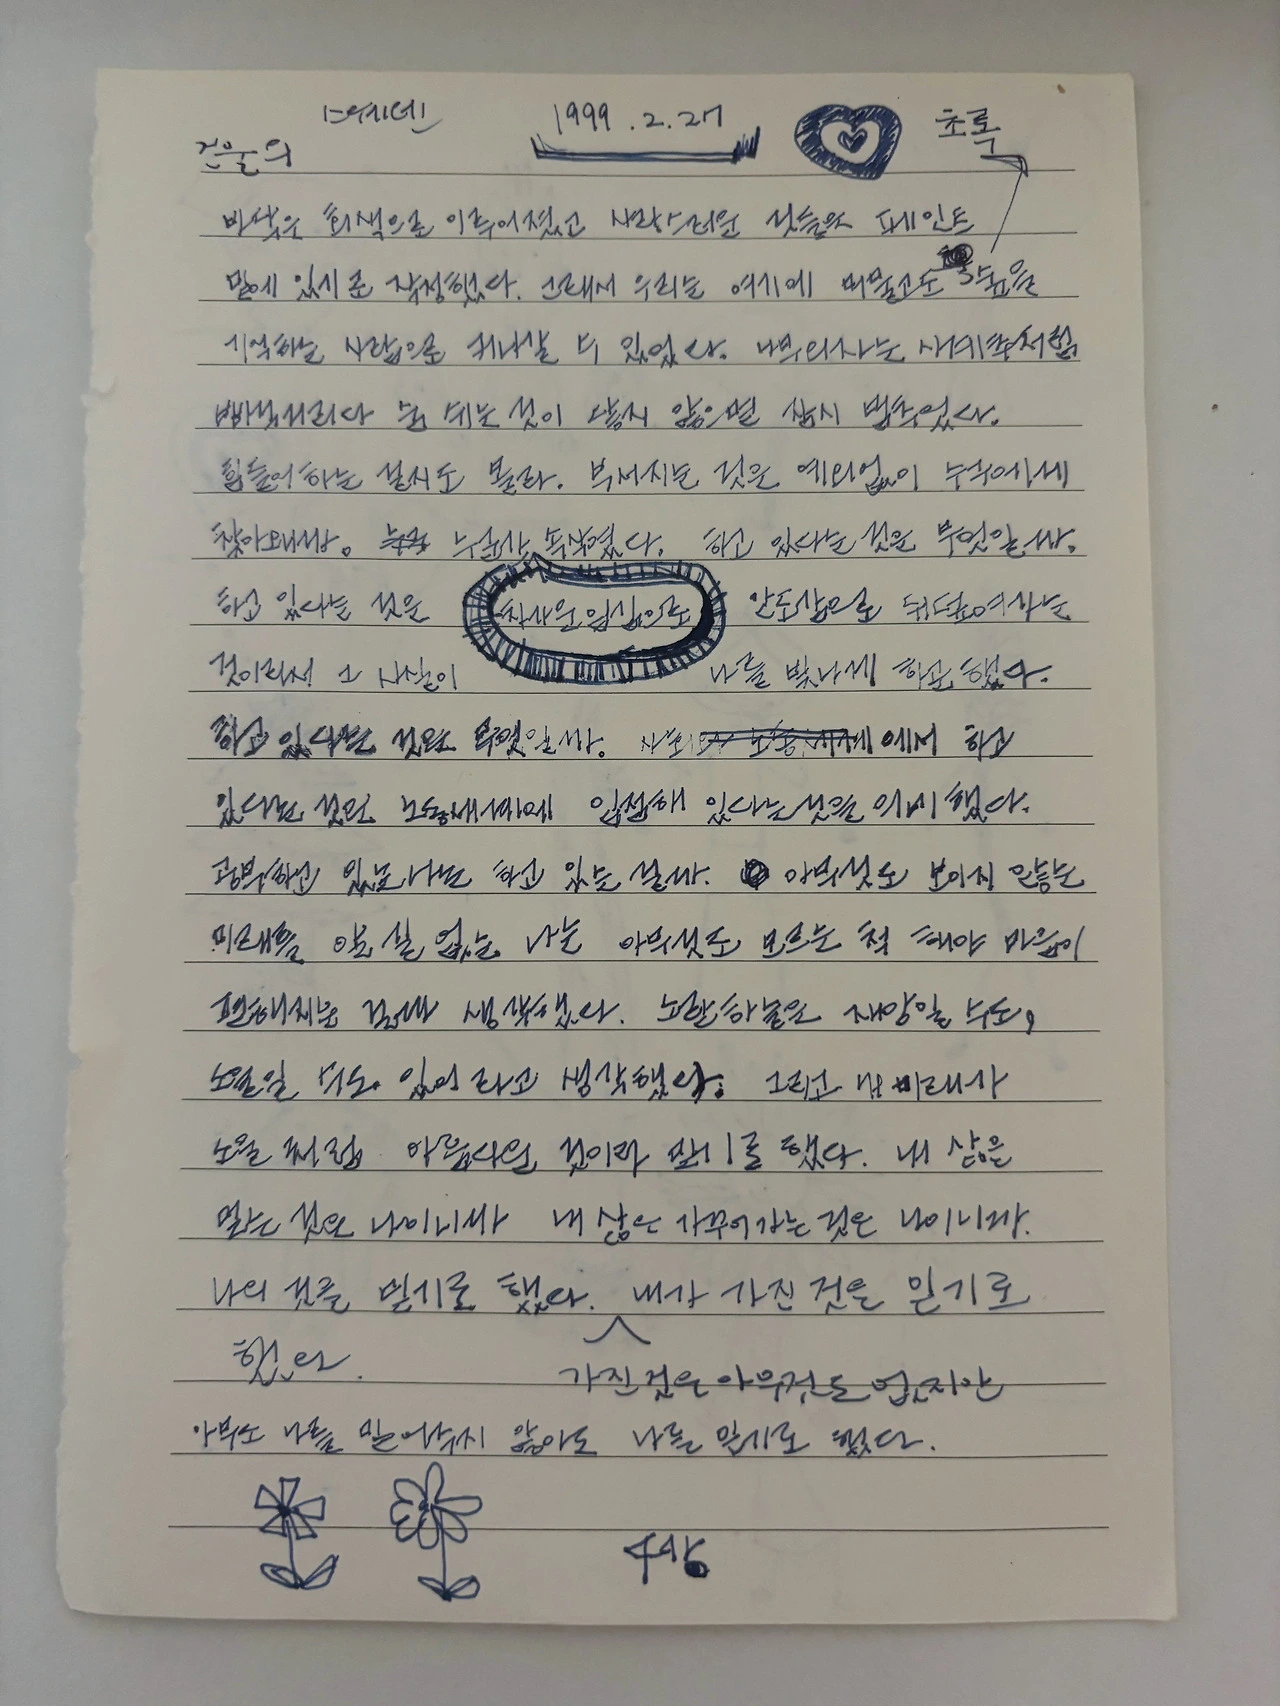 스웨덴 1999.2.27 초록
건물의
바닥은 회색으로 이루어졌고 사랑스러운 것들은 페인트
밑에 있기로 작정했다. 그래서 우리는 여기에 머물고도
기억하는 사람으로 커나갈 수 있었다. 나무의자는
숨 쉬는 것이 낳지 않으면 잠시 멈추었다.
힘들어하는 줄도 몰라. 부서지는 것은 예외없이 누구에게
찾아왜까. 누군가 속삭였다. 하고 있다는 것은 무엇일까.
하고 있다는 것은 차가운 밉심으로 안도감으로
것이라서 그 사실이 나를 빛나게 하곤 했다.
하고 있다는 것은 무엇일까. 에서 하고
있다는 것은 노동세계에 입점해 있다는 것을 의미했다.
공부하고 있는 나는 하고 있는 걸까. 아무것도 보이지 않는
미래를 알 길 없는 나는 아무것도 모르는 척 해야 마음이
편해지는 걸까 생각했다. 노란 하늘은 재앙일 수도,
노을일 수도 있어 라고 생각했다. 그리고 내 미래가
노을처럼 아름다운 것이라 믿기로 했다. 내 삶은
맡는 것은 나이니까 내 삶은 가꾸어가는 것은 나이니까.
나의 것을 믿기로 했다. 내가 가진 것을 믿기로
했다. 가진것은 아무것도 없지만
아무도 나를 믿어주지 않아도 나를 믿기로 했다.